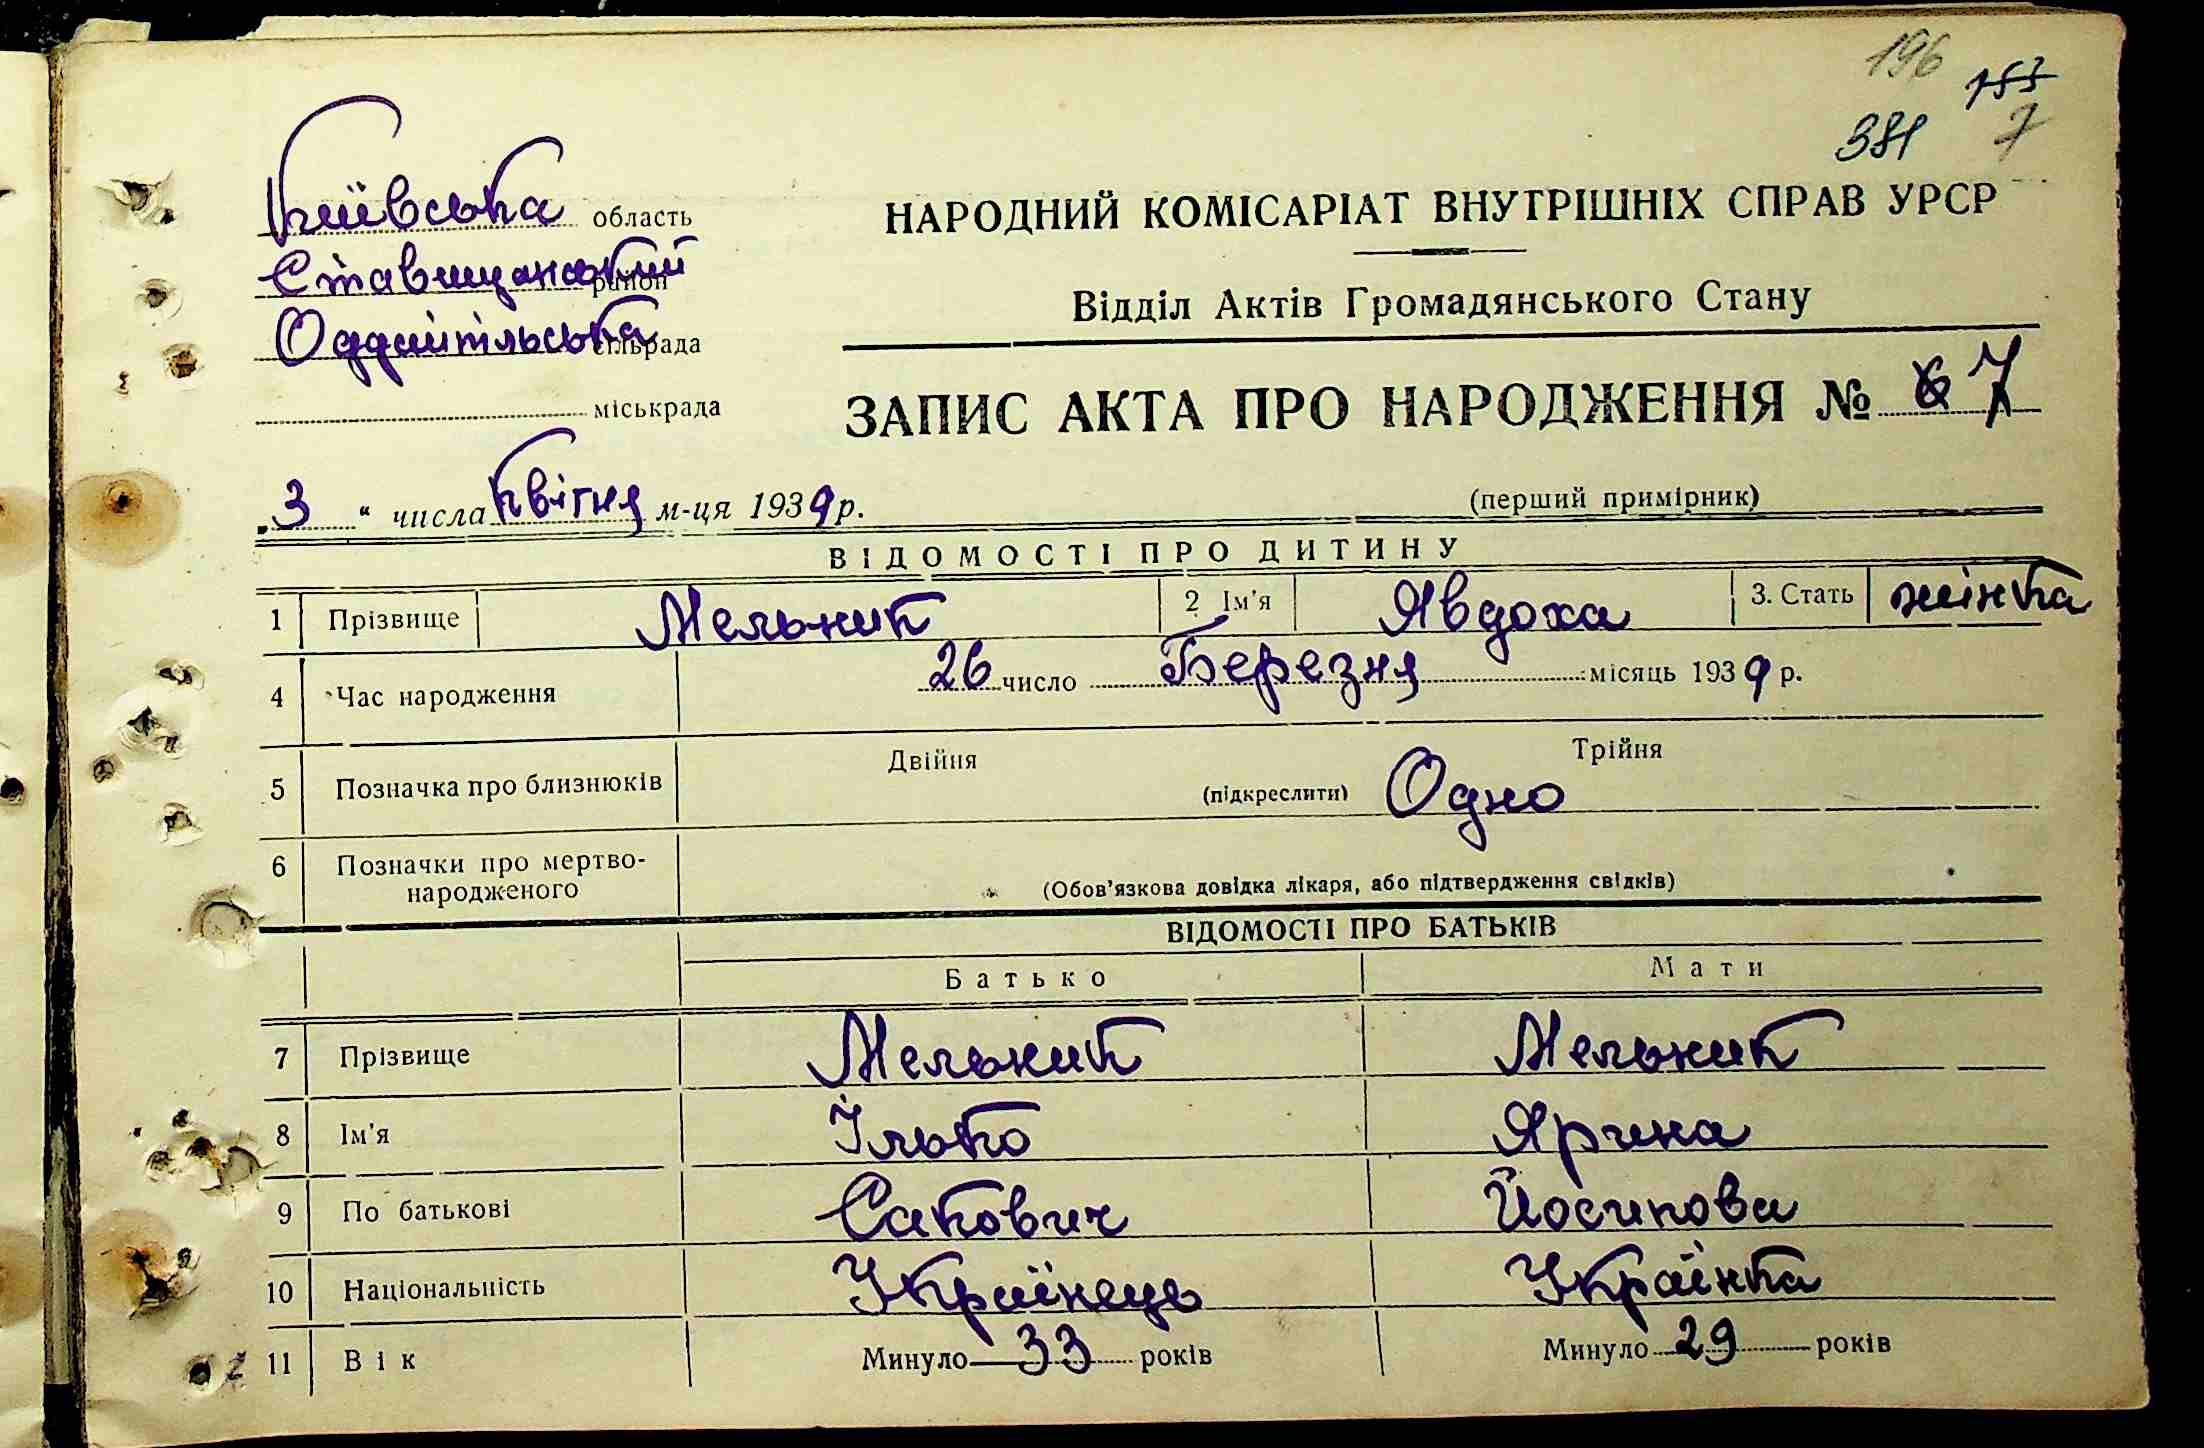 196
381 7
Київська область
Ставищанський район
Оддайпільська сільрада
міськрада
НАРОДНИЙ КОМІСАРІАТ ВНУТРІШНІХ СПРАВ УРСР
Відділ Актів Громадянського Стану
ЗАПИС АКТА ПРО НАРОДЖЕННЯ № 7
„3“ числа квітня м-ця 1939 р.
(перший примірник)
ВІДОМОСТІ ПРО ДИТИНУ
1 Прізвище Мельник 2 Ім'я Явдоха 3. Стать жінка
4 Час народження 26 число Березня місяць 1939 р.
5 Позначка про близнюків Двійня (підкреслити) Трійня Одно
6 Позначки про мертво-
народженого (Обов'язкова довідка лікаря, або підтвердження свідків)
ВІДОМОСТІ ПРО БАТЬКІВ
Батько Мати
7 Прізвище Мельник Мельник
8 Ім'я Ілько Ярина
9 По батькові Сакович Йосипова
10 Національність Українець Українка
11 Вік Минуло 33 років Минуло 29 років